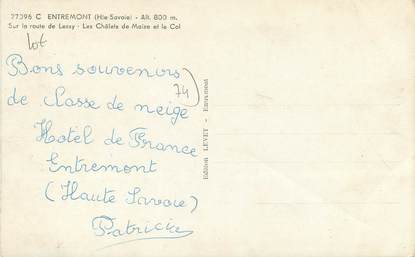 27396 C ENTREMONT (Hte-Savoie) - Alt. 800 m.
Sur la route de Lessy - Les Châlets de Maize et le Col
lot
Bons souvenirs
74
de classe de neige
Hotel de France
Entremont
(Haute Savoie)
Patricia
Edition LEVET - Entremont